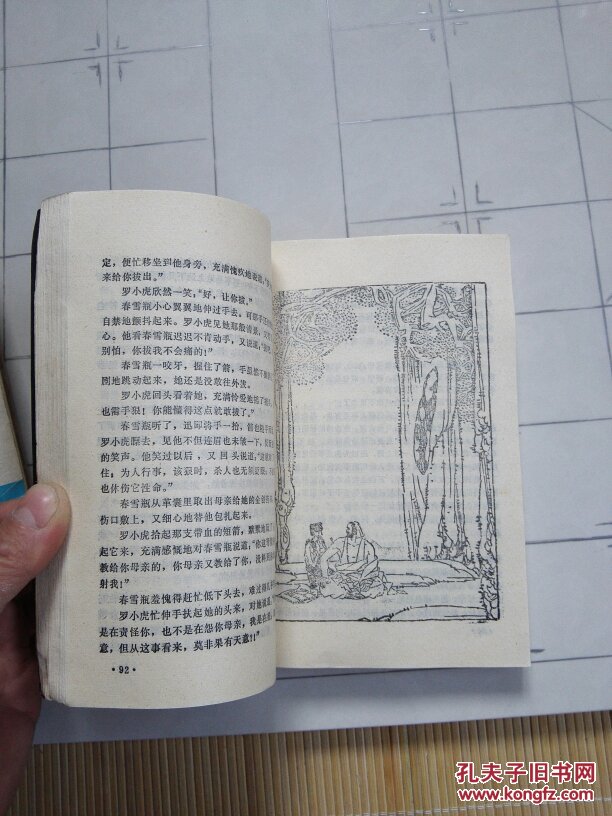 定，便忙移坐到他身旁，充满愧疚地
来给你拔出。”
罗小虎欣然一笑，“好，让你拔。”
春雪瓶小心翼翼地伸过手去，可那手
自禁地颤抖起来。罗小虎见她那般情景，
心。他看春雪瓶迟迟不肯动手，又说道：
别怕，你拔我不会痛的！”
春雪瓶一咬牙，捏住了箭，手虽然不
剧地跳动起来，她还是没敢往外拔。
罗小虎回头看着她，充满怜爱地
也需手狠！你能懂得这点就敢拔了。”
春雪瓶听了，迅即将手一抬，箭
罗小虎瞟去，见他不但连眉也未皱一下，
的笑声。他笑过以后，又回头说道，
住：为人行事，该狠时，杀人也无须眨眼，
也休伤它性命。”
春雪瓶从革囊里取出母亲给她的金创
伤口敷上，又细心地替他包扎起来。
罗小虎拾起那支带血的短箭，
起它来，充满感慨地对春雪瓶说道：“你这
教给你母亲的，你母亲又教给了你，没料
射我！”
春雪瓶羞愧得赶忙低下头去，难过得
罗小虎忙伸手扶起她的头来，对她说道
是在责怪你，也不是在怨你母亲，我是
意，但从这事看来，莫非果有天意？！”
·92·
孔夫子旧书网
www.kongfz.com